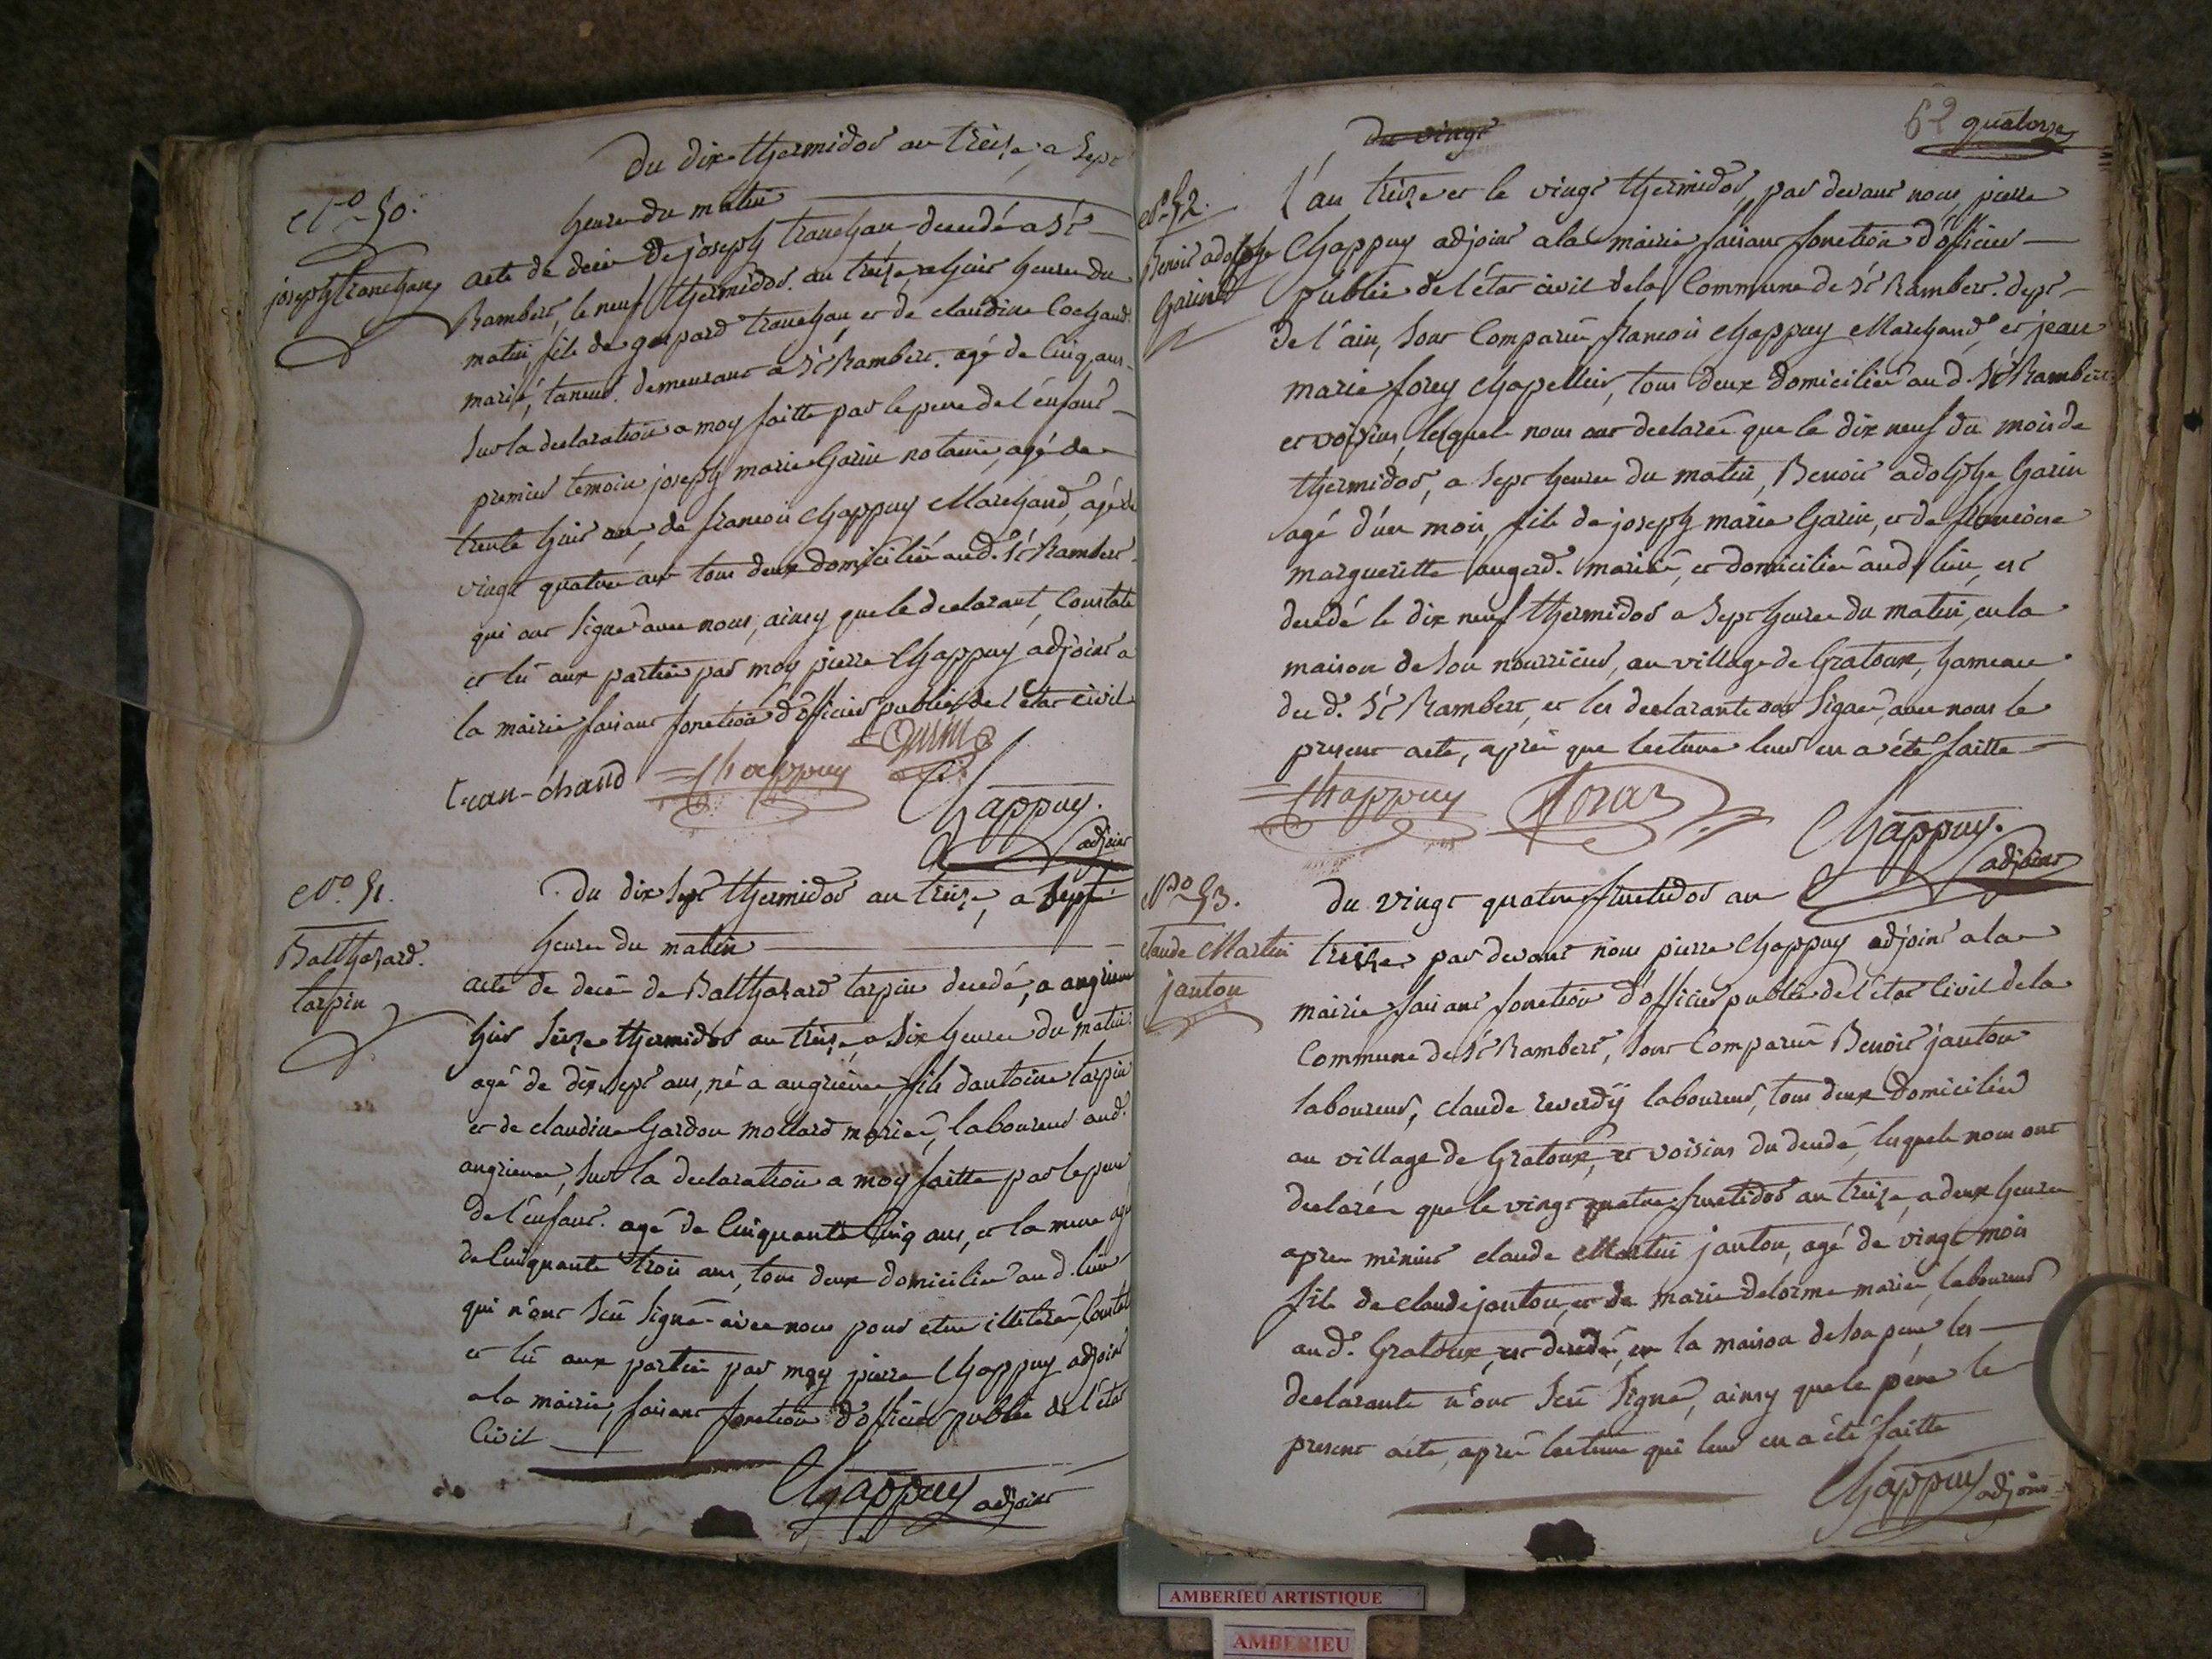 du dix thermidor an treize, a sept
heures du matin
N.o 50.
joseph tranchan
acte de deces de joseph tranchan decedé a St
Rambert, le neuf thermidor an treize a huit heures du
matin, fils de gaspard tranchan et de claudine Cochand
mariés, taneur demeurant a St Rambert. agé de Cinq ans
Sur la declaration a moy faitte par le pere de l'enfant
premier temoin joseph marie Garin notaire, agé de
trente huit ans, de francois Chappuy Marchand, agé de
vingt quatre ans tous deux domiciliés aud. St Rambert
qui ont Signé avec nous, ainsy que le declarant, Constaté
et lu aux parties par moy pierre Chappuy adjoint a
la mairie faisant fonction d'officier public de l'etat civil
tran-chand Chappuy Garin
Chappuy.
adjoint
N.o 51.
Balthazard.
tarpin
du dix sept thermidor an treize, a Sept
heures du matin
acte de deces de Balthazard tarpin decedé, a angrieres
hier seize thermidor an treize a Six heures du matin
agé de dix sept ans, né a angrieres, fils d'antoine tarpin
et de claudine Gardon mollard mariés, laboureur aud.
angrieres, Sur la declaration a moy faitte par le pere
de l'enfant. agé de Cinquante Cinq ans, et la mere agée
de Cinquante trois ans, tous deux domiciliés aud. lieu
qui n'ont Sçu Signé avec nous pour etre illiterés, Constaté
et lu aux parties par moy pierre Chappuy adjoint
a la mairie, faisant fonction d'officier public de l'état
Civil
Chappuy adjoint
52 quatorze
du vingt
N.o 52.
Benoit adolphe
Garin
L'an treize et le vingt thermidor, par devant nous, pierre
Chappuy adjoint a la mairie faisant fonction d'officier
public de l'état civil de la Commune de St Rambert. dept
de l'ain, Sont Comparus francois Chappuy Marchand, et jean
marie forey chapellier, tous deux domiciliés aud. St Rambert
et voisins, lesquels nous ont declarés que le dix neuf du mois de
thermidor, a Sept heures du matin, Benoit adolphe Garin
agé d'un mois, fils de joseph marie Garin, et de francoise
margueritte augerd. mariés, et domiciliés aud. lieu, est
decedé le dix neuf thermidor a Sept heures du matin, en la
maison de Son nourricier, au village de Gratoux, hameau
du d. St Rambert, et les declarants ont Signer, avec nous le
present acte, aprés que lecture leur en a été faitte
Chappuy foraz
Chappuy.
adjoint
N.o 53.
Claude Martin
janton
du vingt quatre fructidor an
treize par devant nous pierre Chappuy adjoint a la
mairie faisant fonction d'officier public de l'état Civil de la
Commune de St Rambert, Sont Comparus Benoit janton
laboureur, claude reverdÿ laboureur, tous deux domiciliés
au village de Gratoux, et voisins du decedé, lesquels nous ont
declarés que le vingt quatre fructidor an treize, a deux heures
apres minuit claude Martin janton, agé de vingt mois
fils de claude janton, et de marie delorme mariés, laboureur
aud. Gratoux, est decedé, en la maison de Son pere, les
declarants n'ont Sçu Signer, ainsy que le pére le
present acte, aprés lecture qui leur en a été faitte
Chappuy adjoint
AMBERIEU ARTISTIQUE
AMBERIEU